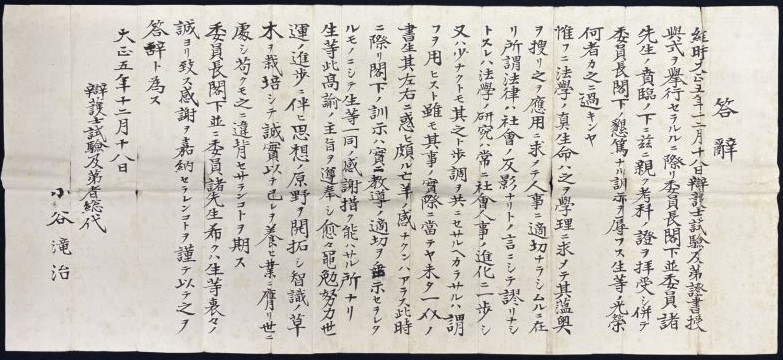 答辭
維時大正五年十二月十八日辯護士試驗及第證書授
與式ヲ舉行セラルルニ際リ委員長閣下並委員諸
先生ノ賁臨ノ下ニ茲ニ親シク考科ノ證ヲ拜受シ併テ
委員長閣下ノ懇篤ナル訓示ヲ辱フス生等ノ光榮
何者カ之ニ過キンヤ
惟フニ法學ノ真生命ハ之ヲ學理ニ求メテ其蘊奥
ヲ搜リ之ヲ應用ニ求メテ人事ニ適切ナラシムルニ在
リ所謂法律ハ社會ノ反影ナリトノ言ニシテ謬リナシ
トスレハ法學ノ研究ハ常ニ社會人事ノ進化ニ一歩ノシ
又ハ少ナクトモ其之ト歩調ヲ共ニセサルヘカラサルハ謂
フヲ用ヒスト雖モ其事ノ實際ニ當テヤ未タ一介ノ
書生其左右ニ惑ヒ頗ル亡羊ノ感ナクンハアラス此時
ニ際リ閣下ノ訓示ハ實ニ教導ノ適切ヲ示セラレタ
ルモノニシテ生等一同ノ感謝措ク能ハサル所ナリ
生等此高諭ノ主旨ヲ遵奉シ愈々黽勉努力世
運ノ進歩ニ伴ヒ思想ノ原野ヲ開拓シ智識ノ草
木ヲ栽培シテ誠實以テ己レヲ養ヒ業ニ膺リ世ニ
處シ苟クモ之ニ違背セサランコトヲ期ス
委員長閣下並ニ委員諸先生希クハ生等衷々ノ
誠ヨリ致ス感謝ヲ嘉納セラレンコトヲ謹テ以テ之ヲ
答辭ト為ス
大正五年十二月十八日
辯護士試驗及第者総代
小谷滝治